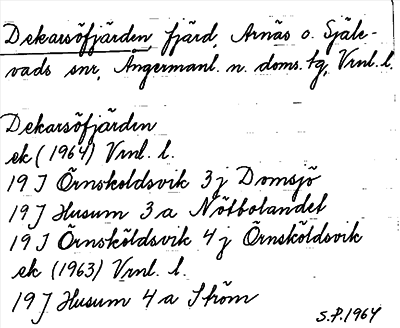 Dekarsöfjärden fjärd, Arnäs o. Själe-
vads snr, Ångermanl. n. doms. tg, Vrnl. l.
Dekarsöfjärden
ek (1964) Vrnl. l.
19 J Örnsköldsvik 3 j Domsjö
19 J Husum 3 a Nötbolandet
19 J Örnsköldsvik 4 j Örnsköldsvik
ek (1963) Vrnl. l.
19 J Husum 4 a Ström
S.P. 1964